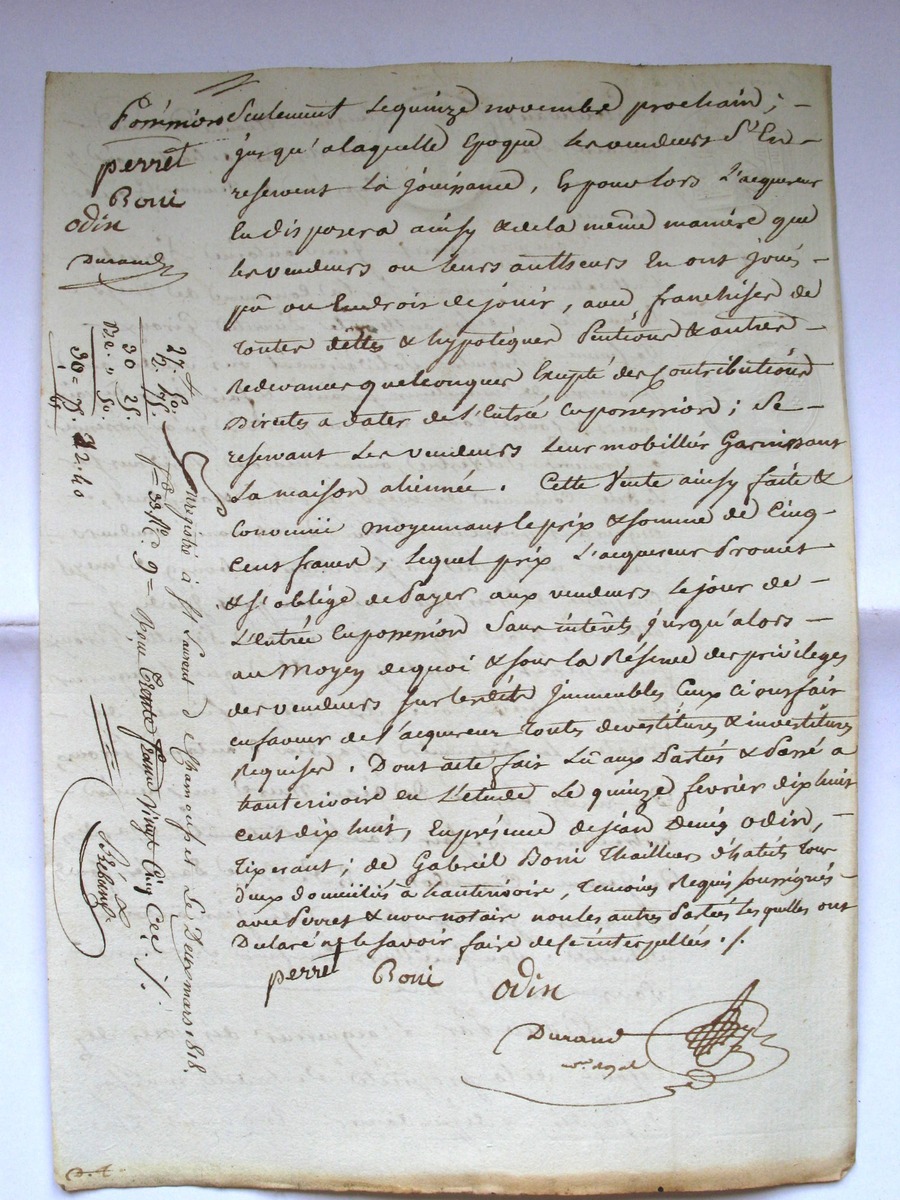 seulement le quinze novembre prochain ; –
jusqu'a laquelle Epoque les vendeurs s'En –
reservent la jouissance, Et pour lors L'acquereur
En disposera ainsy & de la même manière que
les vendeurs ou leurs autheurs En ont joui –
pû ou En droit de jouir, avec franchises de
toutes dettes & hypotéques Pentions & autres –
Redevances quelconques Excepté des contributions
Directes a dater de l'Entrée En possession ; Se –
reservant Les vendeurs Leur mobillier Garnissant
La maison alienneé. Cette Vente ainsy faite &
Convenüe moyennant le prix & somme de Cinq –
Cent francs, lequel prix L'acquereur Promet
& s'oblige de Payer aux vendeurs Le jour de –
L'entrée En possession Sans intérêts jusqu'alors –
au moyen de quoi & sous la Réserve des privileges
des vendeurs sur lesdits Immeubles Ceux ci ont fait
en faveur de l'acquereur toutes devestitures & investitures
Requises. Dont acte fait Lû aux Parties & Passé a
hauterivoire en L'etude Le quinze fevrier dix huit
cent dix huit, En présence de jean Denis Odin, –
Tixerant ; de Gabriel Boni Thailliers d'habits tous
deux domiciliés a hauterivoire, temoins Requis soussignés –
avec Perret & nous notaire non les autres Parties lesquelles ont
Declaré ne le savoir faire de ce interpellées ./.
perret Boni Odin
Durand
nre. royal
perret
Boni
odin
Durand
27. 50.
2. 75.
30 25.
30 = 75
12. 40
Enregistré à St Laurent de Chamousset Le Deux mars 1818.
fo. 33 Ro. Co. 9 = Reçu Trente francs Vingt Cinq Cen. /.